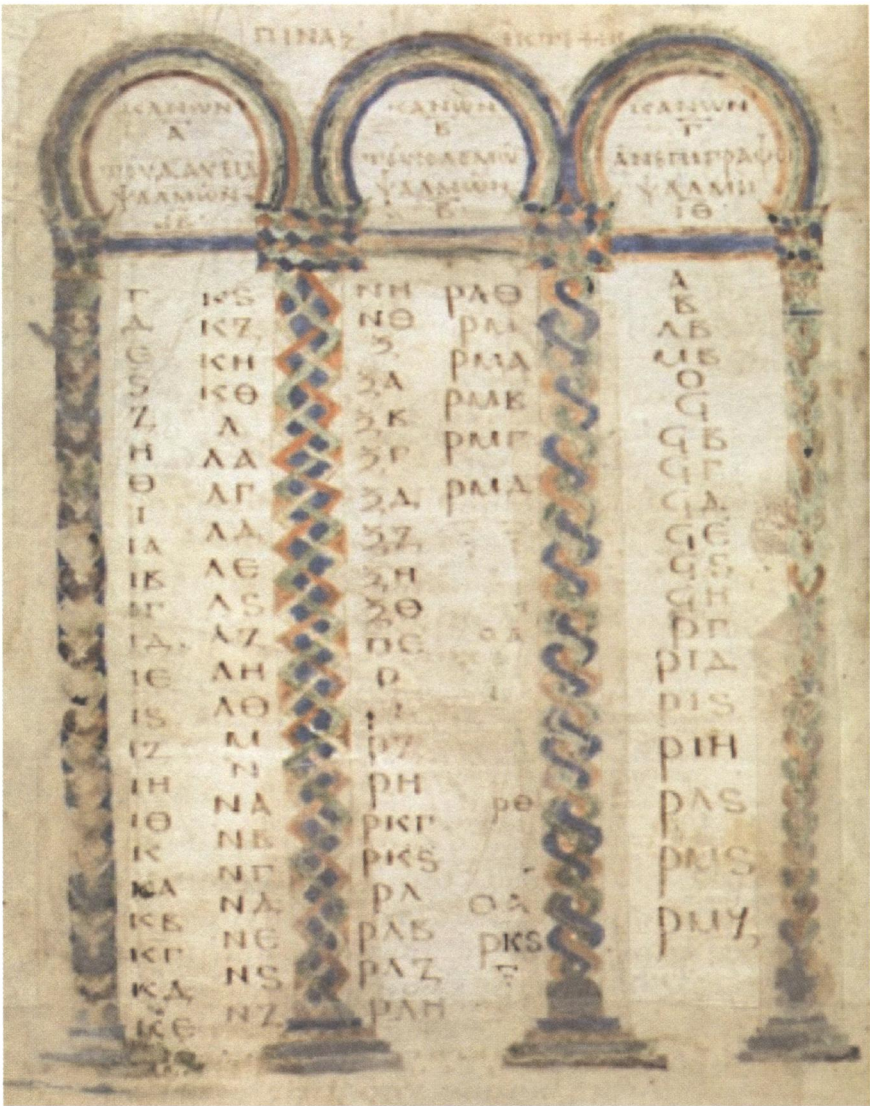 ΠΙΝΑΞ
ΚΑΝΩΝ
Α
ΨΑΛΜΩΝ
ΚΑΝΩΝ
Β
ΨΑΛΜΩΝ
ΚΑΝΩΝ
Γ
ΑΝΕΠΙΓΡΑΦΟΙ
ΨΑΛΜΟΙ
ΙΘ
Γ
Δ
Є
Ϛ
Ζ
Η
Θ
Ι
ΙΑ
ΙΒ
ΙΓ
ΙΔ
ΙЄ
ΙϚ
ΙΖ
ΙΗ
ΙΘ
Κ
ΚΑ
ΚΒ
ΚΓ
ΚΔ
ΚЄ
ΚϚ
ΚΖ
ΚΗ
ΚΘ
Λ
ΛΑ
ΛΓ
ΛΔ
ΛЄ
ΛϚ
ΛΖ
ΛΗ
ΛΘ
Μ
Ν
ΝΑ
ΝΒ
ΝΓ
ΝΔ
ΝЄ
ΝϚ
ΝΖ
ΝΗ
ΝΘ
Ξ
ΞΑ
ΞΒ
ΞΓ
ΞΔ
ΞΖ
ΞΗ
ΞΘ
ΠЄ
Ρ
ΡΖ
ΡΗ
ΡΚΓ
ΡΚϚ
ΡΛ
ΡΛΒ
ΡΛΖ
ΡΛΗ
ΡΛΘ
ΡΜ
ΡΜΑ
ΡΜΒ
ΡΜΓ
ΡΜΔ
ΟΑ
ΡΘ
ΟΑ
ΡΚϚ
Α
Β
ΛΒ
ΜΒ
Ο
Ϙ
ϘΒ
ϘΓ
ϘΔ
ϘЄ
ϘϚ
ϘΗ
ΡΓ
ΡΙΔ
ΡΙϚ
ΡΙΗ
ΡΛϚ
ΡΜϚ